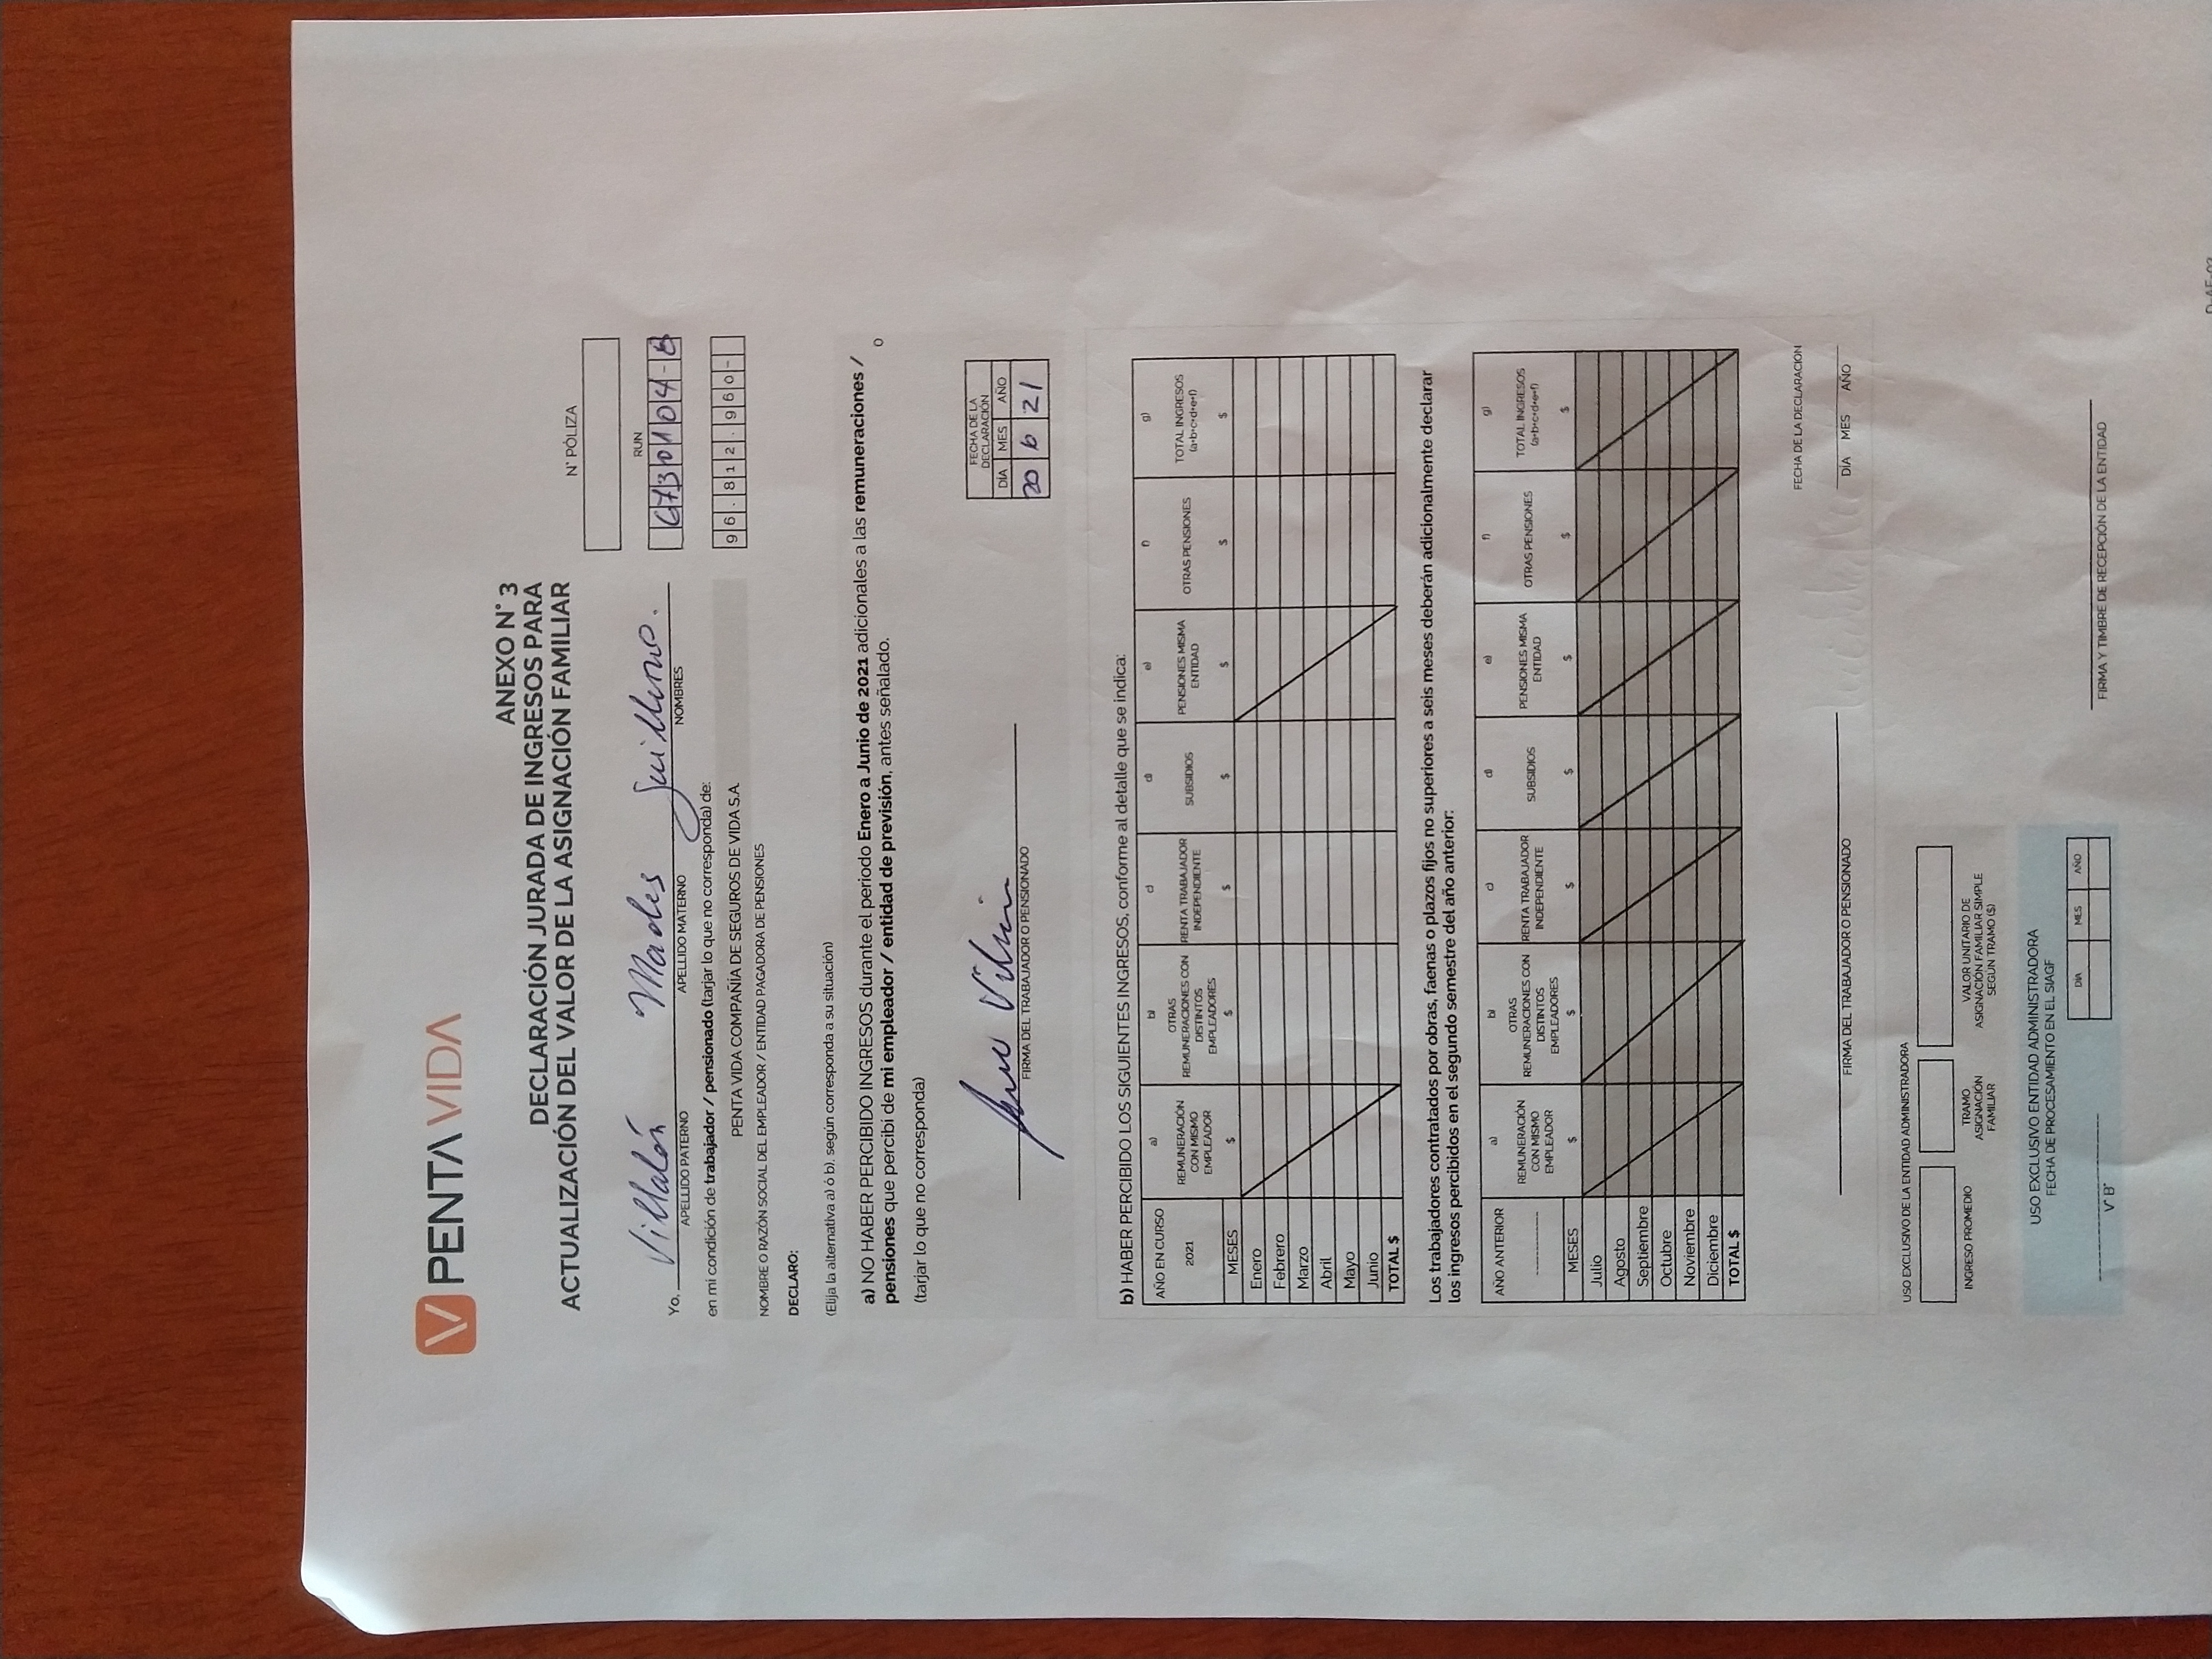 PENTA VIDA
ANEXO N° 3
DECLARACIÓN JURADA DE INGRESOS PARA
ACTUALIZACIÓN DEL VALOR DE LA ASIGNACIÓN FAMILIAR
N° PÓLIZA
RUN
Yo, Villalón Guillermo. 6730104-8
APELLIDO PATERNO APELLIDO MATERNO NOMBRES
en mi condición de trabajador / pensionado (tarjar lo que no corresponda) de:
PENTA VIDA COMPAÑÍA DE SEGUROS DE VIDA S.A. 96.812.960-
NOMBRE O RAZÓN SOCIAL DEL EMPLEADOR / ENTIDAD PAGADORA DE PENSIONES
DECLARO:
(Elija la alternativa a) ó b), según corresponda a su situación)
a) NO HABER PERCIBIDO INGRESOS durante el periodo Enero a Junio de 2021 adicionales a las remuneraciones /
pensiones que percibí de mi empleador / entidad de previsión, antes señalado. o
(tarjar lo que no corresponda)
FECHA DE LA
DECLARACIÓN
DÍA MES AÑO
20 6 21
FIRMA DEL TRABAJADOR O PENSIONADO
b) HABER PERCIBIDO LOS SIGUIENTES INGRESOS, conforme al detalle que se indica:
AÑO EN CURSO 2021 MESES
a) REMUNERACIÓN CON MISMO EMPLEADOR $
b) OTRAS REMUNERACIONES CON DISTINTOS EMPLEADORES $
c) RENTA TRABAJADOR INDEPENDIENTE $
d) SUBSIDIOS $
e) PENSIONES MISMA ENTIDAD $
f) OTRAS PENSIONES $
g) TOTAL INGRESOS (a+b+c+d+e+f) $
Enero
Febrero
Marzo
Abril
Mayo
Junio
TOTAL $
Los trabajadores contratados por obras, faenas o plazos fijos no superiores a seis meses deberán adicionalmente declarar
los ingresos percibidos en el segundo semestre del año anterior:
AÑO ANTERIOR MESES
a) REMUNERACIÓN CON MISMO EMPLEADOR $
b) OTRAS REMUNERACIONES CON DISTINTOS EMPLEADORES $
c) RENTA TRABAJADOR INDEPENDIENTE $
d) SUBSIDIOS $
e) PENSIONES MISMA ENTIDAD $
f) OTRAS PENSIONES $
g) TOTAL INGRESOS (a+b+c+d+e+f) $
Julio
Agosto
Septiembre
Octubre
Noviembre
Diciembre
TOTAL $
FECHA DE LA DECLARACION
FIRMA DEL TRABAJADOR O PENSIONADO DÍA MES AÑO
USO EXCLUSIVO DE LA ENTIDAD ADMINISTRADORA
INGRESO PROMEDIO
TRAMO ASIGNACIÓN FAMILIAR
VALOR UNITARIO DE ASIGNACIÓN FAMILIAR SIMPLE SEGÚN TRAMO ($)
USO EXCLUSIVO ENTIDAD ADMINISTRADORA
FECHA DE PROCESAMIENTO EN EL SIAGF
DÍA MES AÑO
V° B°
FIRMA Y TIMBRE DE RECEPCIÓN DE LA ENTIDAD